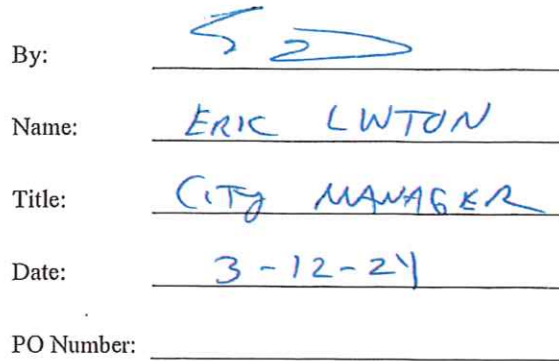 By:
Name: ERIC LWTON
Title: CITY MANAGER
Date: 3-12-24
PO Number: